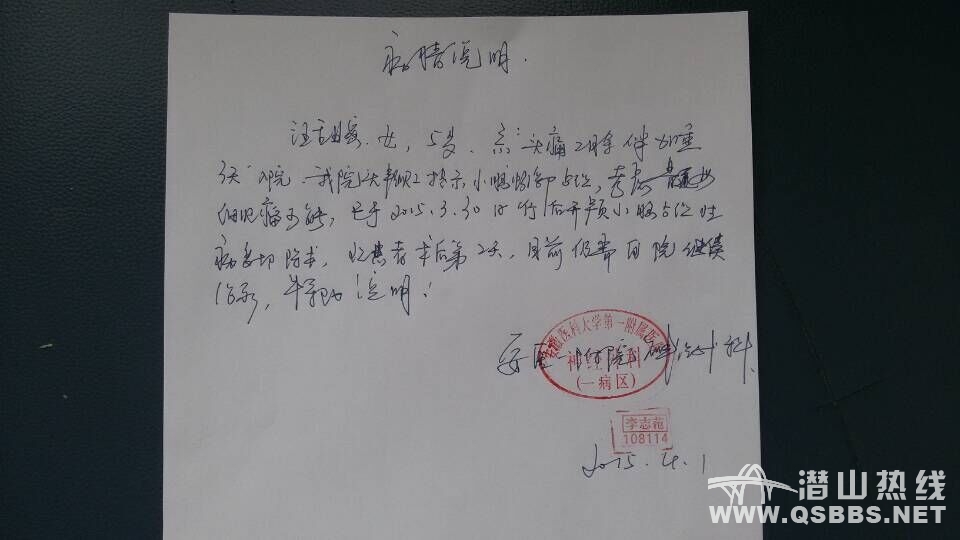 病情说明
女, 5岁, 系"头痛2月余伴加重
5天"入院. 我院头颅MRI提示小脑蚓部占位, 考虑
细胞瘤可能, 已于2015.3.30日行后开颅小脑占位性
病变切除术, 现患者术后第2天, 目前仍需留院继续
治疗, 特此说明!
安医一附院神经外科
安徽医科大学第一附属医院
神经外科
(一病区)
李志范
108114
2015.4.1
潜山热线
WWW.QSBBS.NET